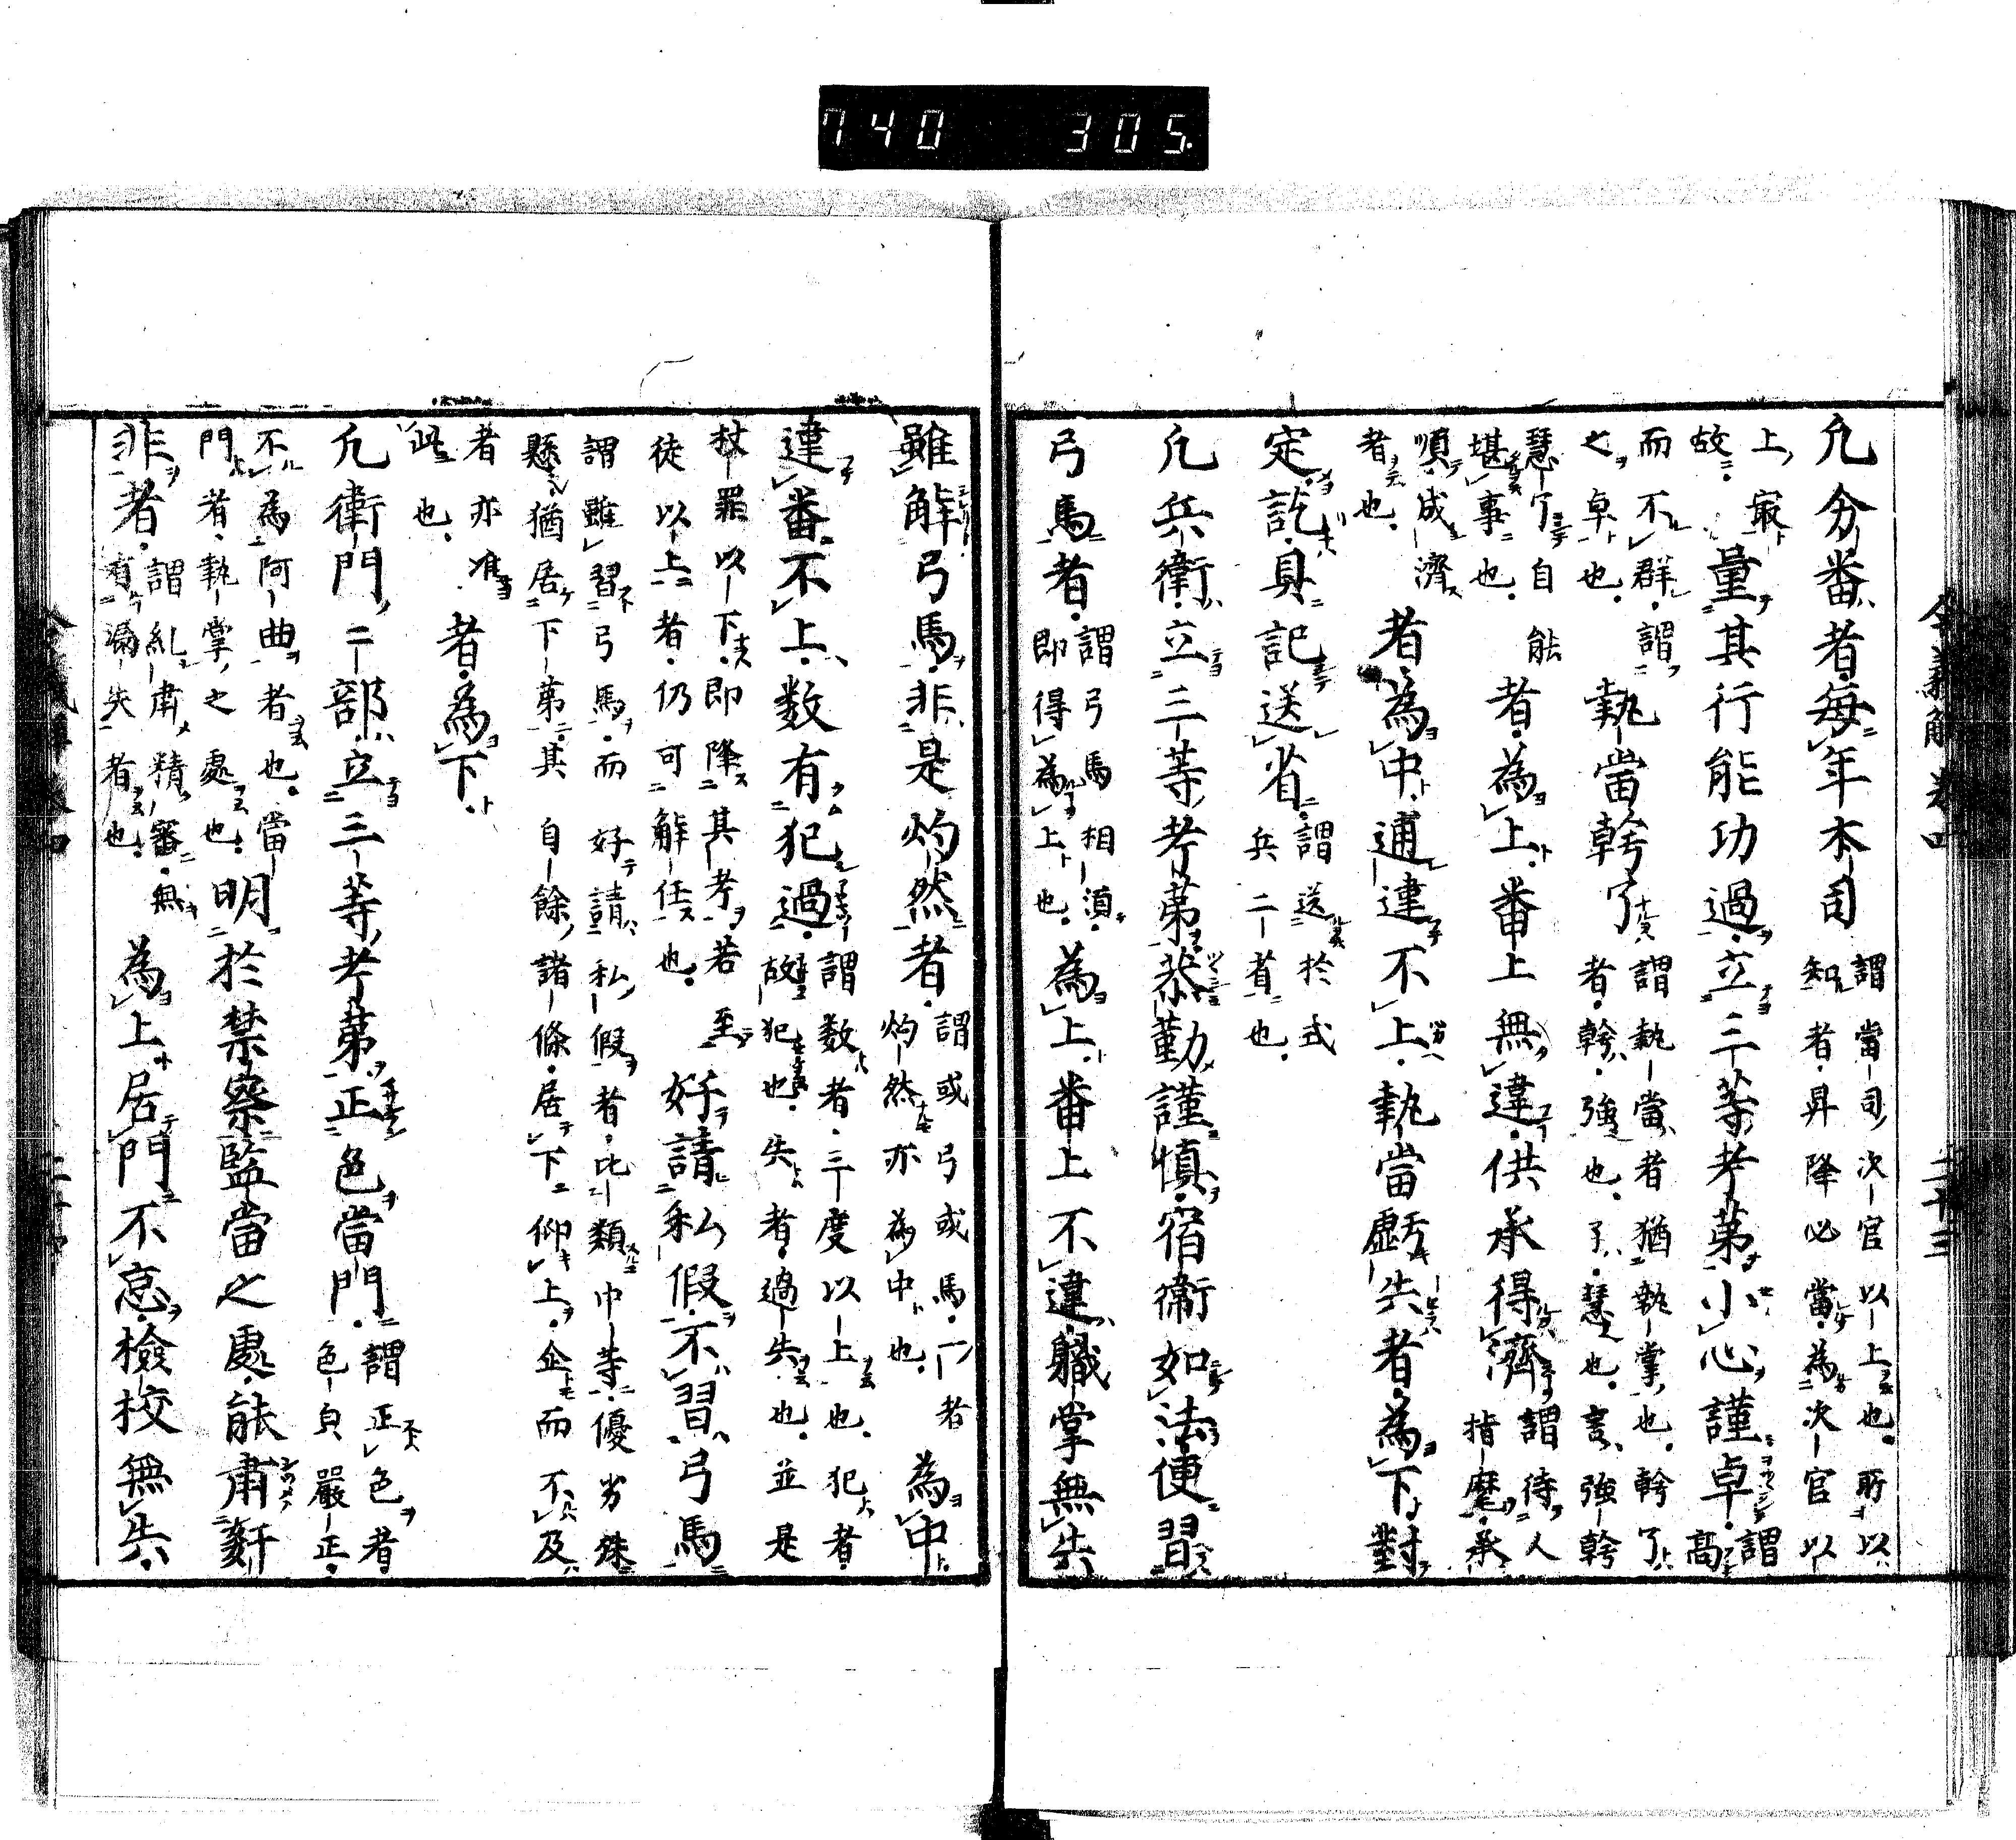 740 305
令義解 卷四 三十三
凢分番者毎年本司謂當司次官以上也所以知者昇降必當為次官以
上冣故量其行能功過立三等考第小心謹卓謂高
而不群謂之卓也執當幹了謂執當者猶執掌也幹了者幹強也了慧也言強幹
慧了自能堪事也者為上番上無違供承得濟謂待人指麾承
順成濟者也者為中逋違不上執當虧失者為下對
定訖具記送省謂送於式兵二省也
凢兵衛立三等考第恭勤謹慎宿衛如法便習
弓馬者謂弓馬相須即得為上也為上番上不違職掌無失
雖解弓馬非是灼然者謂或弓或馬一者灼然亦為中也為中
違番不上数有犯過謂数者三度以上也犯者故犯也失者過失也並是
杖罪以下即降其考若至徒以上者仍可解任也好請私假不習弓馬
謂雖習弓馬而好請私假者比類中等優劣殊懸猶居下第其自餘諸條居下仰上企而不及
者亦准此也者為下
凢衛門二部立三等考第正色當門謂正色者色貞嚴正
不為阿曲者也當門者執掌之處也明於禁察監當之處能肅姧
非者謂糺肅精審無有漏失者也為上居門不怠檢挍無失